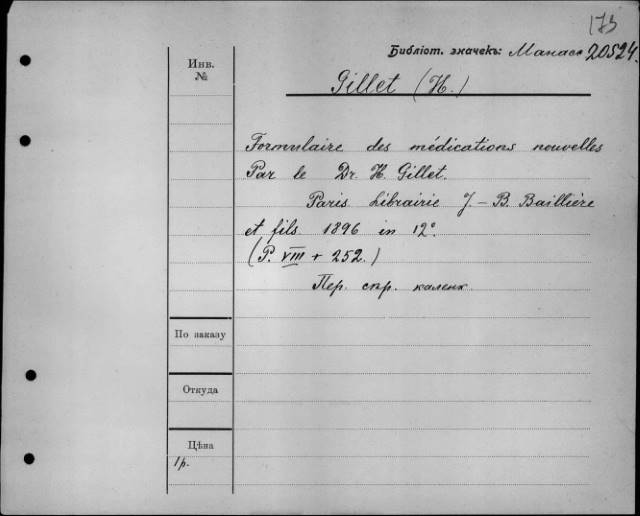 173
Библіот. значекъ: Манасс 20524.
Инв.
№
Gillet (H.)
Formulaire des médications nouvelles
Par le Dr. H. Gillet.
Paris. Librairie J.-B. Baillière
et fils 1896 in 12°.
(P. VIII + 252.)
Пер. спр. каленк.
По заказу
Откуда
Цѣна
1р.